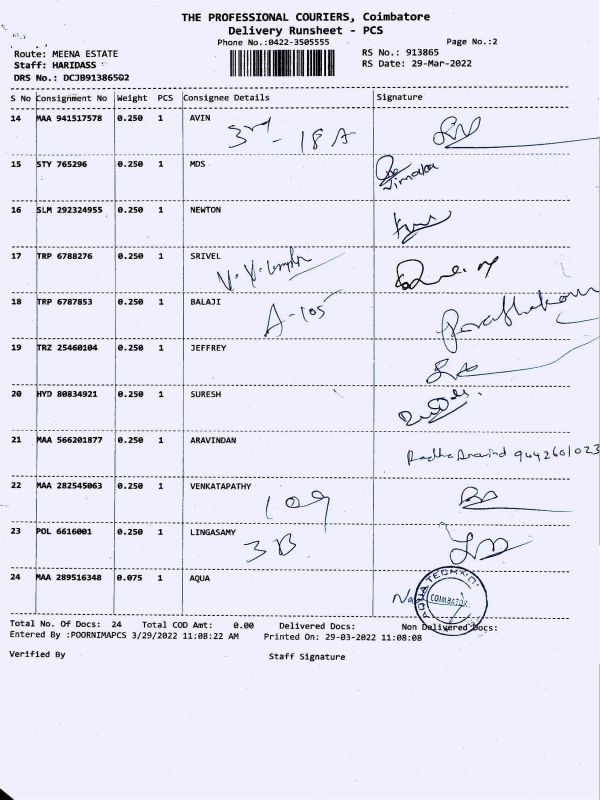 THE PROFESSIONAL COURIERS, Coimbatore
Delivery Runsheet - PCS
Phone No.:0422-3505555 Page No.:2
Route: MEENA ESTATE RS No.: 913865
Staff: HARIDASS RS Date: 29-Mar-2022
DRS No.: DCJB91386502
S No Consignment No Weight PCS Consignee Details Signature
14 MAA 941517578 0.250 1 AVIN
3rd - 18 A
15 STY 765296 0.250 1 MDS
16 SLM 292324955 0.250 1 NEWTON
17 TRP 6788276 0.250 1 SRIVEL
18 TRP 6787853 0.250 1 BALAJI
A-105
19 TRZ 25460104 0.250 1 JEFFREY
20 HYD 80834921 0.250 1 SURESH
21 MAA 566201877 0.250 1 ARAVINDAN
Radha Aravind 9442601023
22 MAA 282545063 0.250 1 VENKATAPATHY
109
23 POL 6616001 0.250 1 LINGASAMY
3B
24 MAA 289516348 0.075 1 AQUA
COIMBATOR
Total No. Of Docs: 24 Total COD Amt: 0.00 Delivered Docs: Non Delivered Docs:
Entered By :POORNIMAPCS 3/29/2022 11:08:22 AM Printed On: 29-03-2022 11:08:08
Verified By Staff Signature